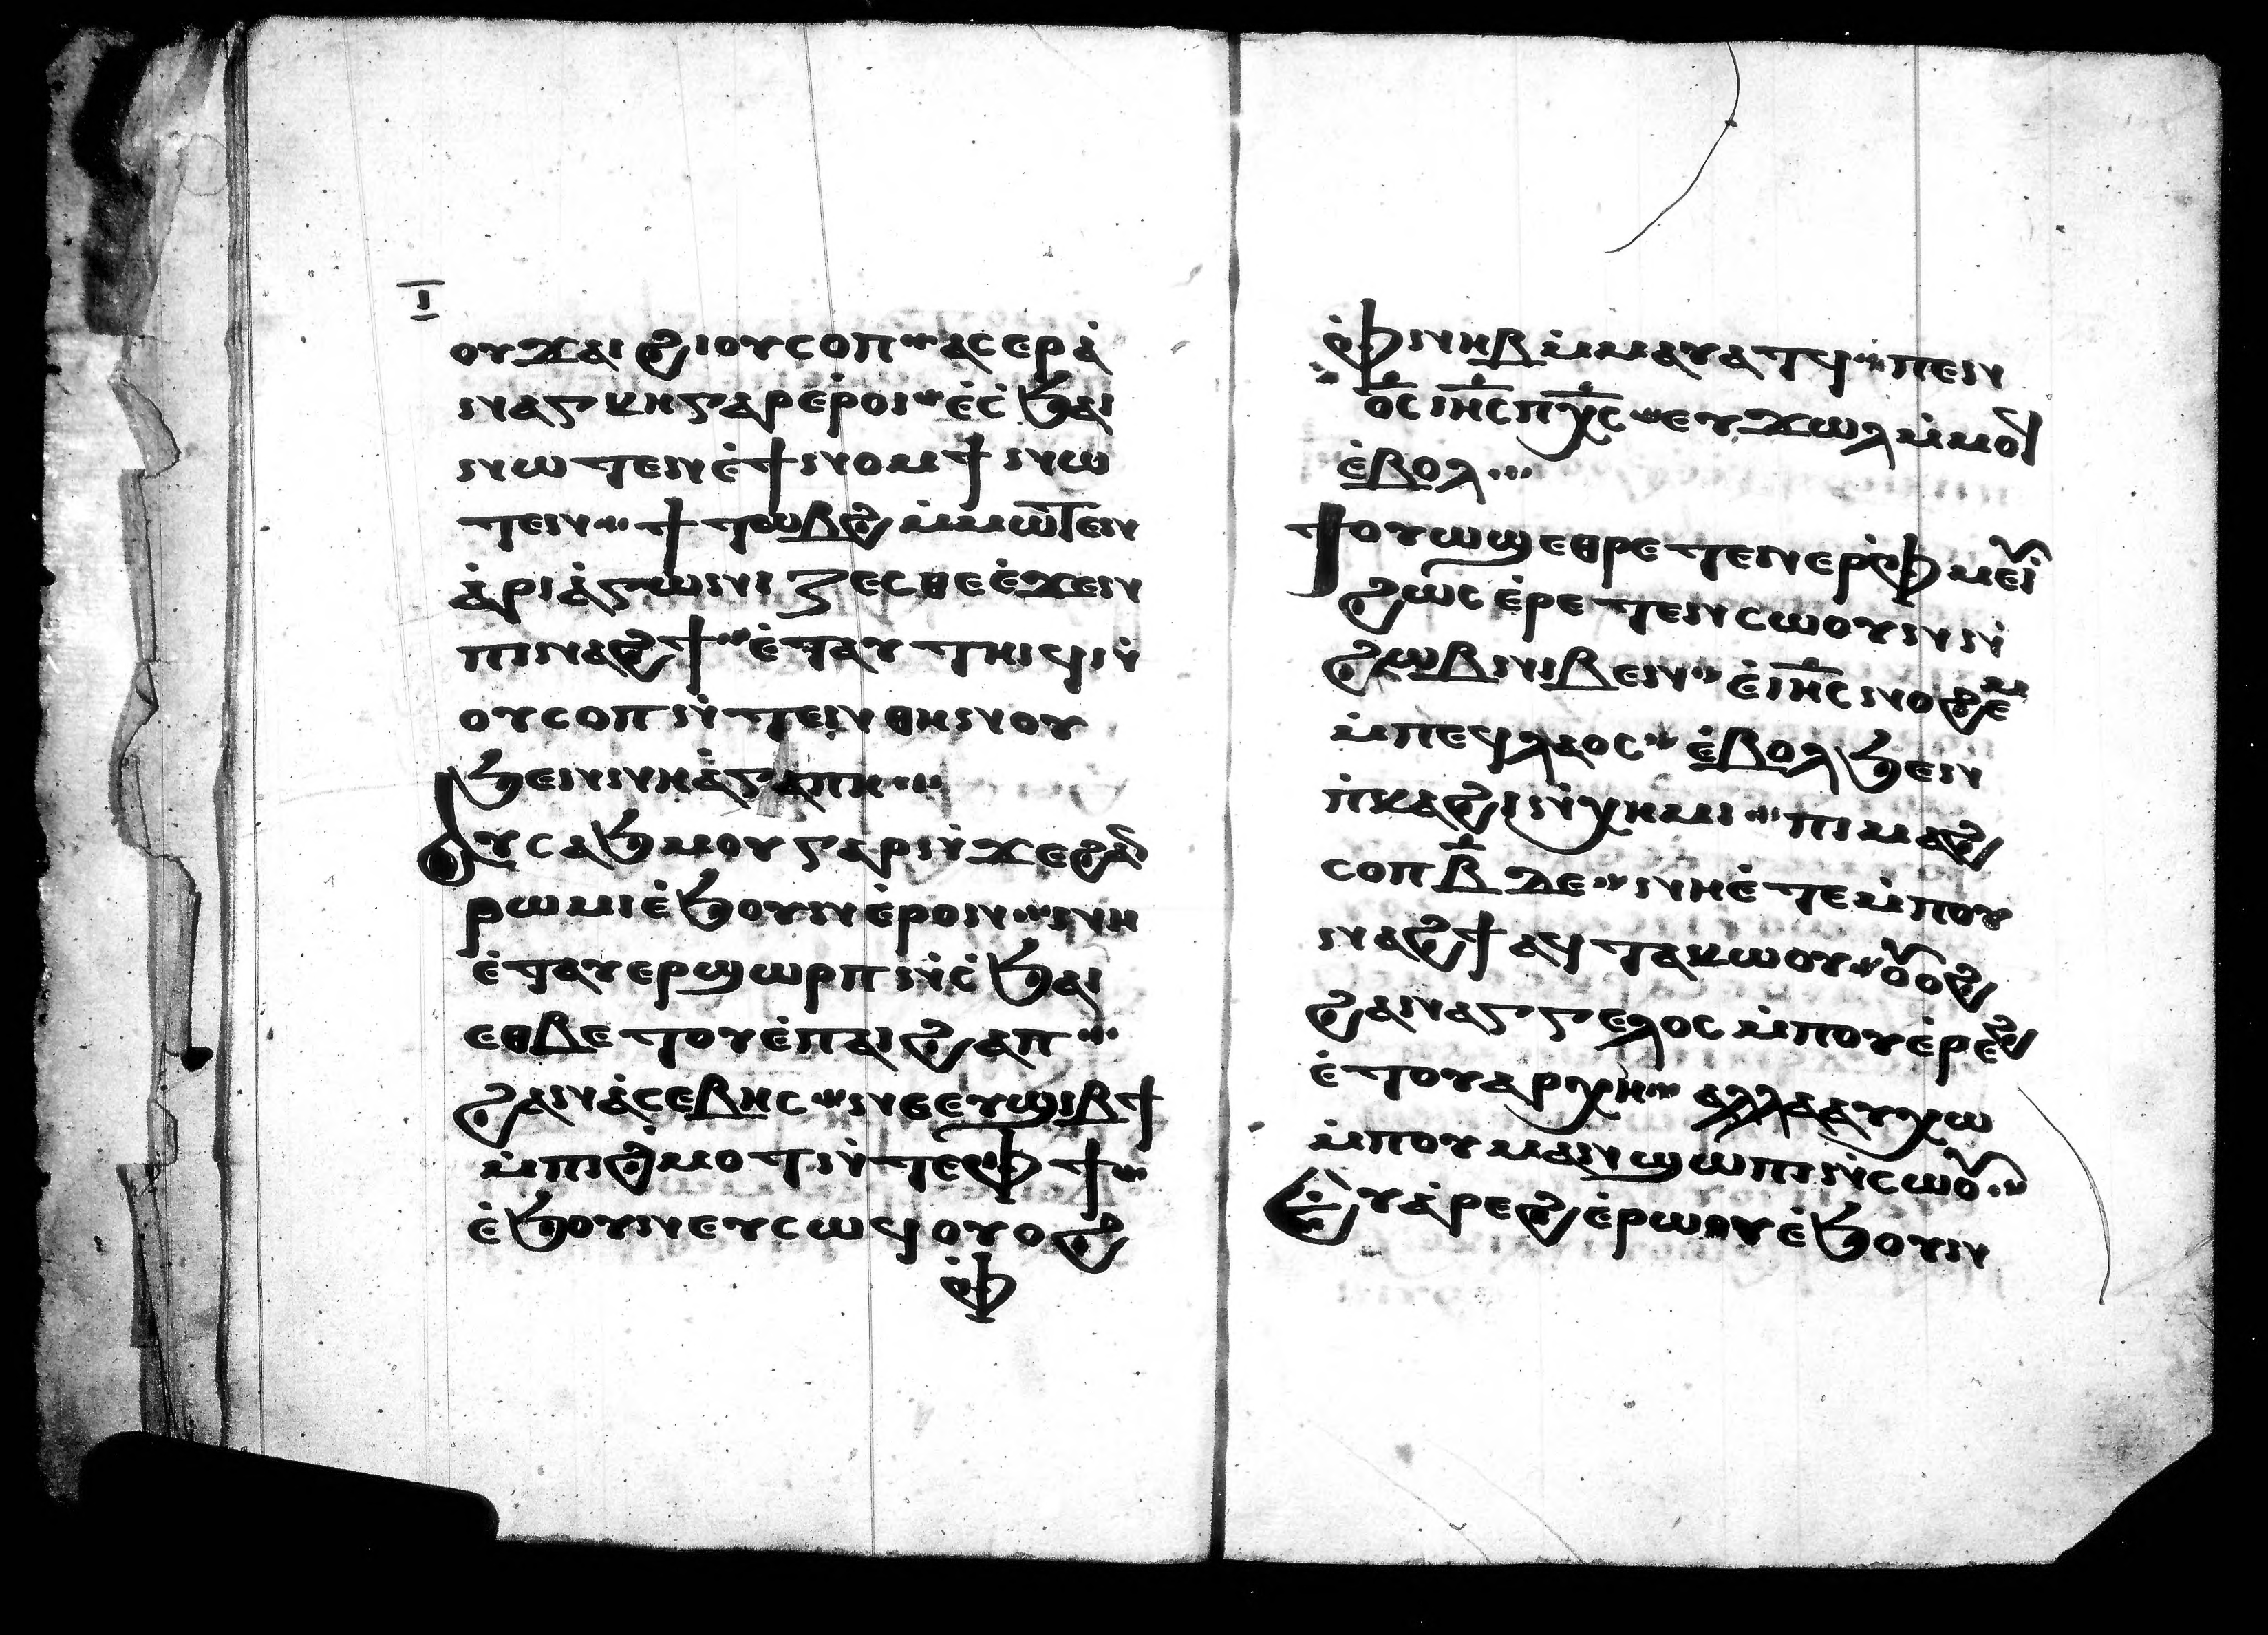 Ⲓ̅
ⲟⲩϫⲁⲓ ϩⲓⲟⲩⲥⲟⲡ ⁘ ⲁⲥⲉⲣⲁ̇
ⲛⲁⲅⲕⲏ ⲅⲁⲣ ⲉ̇ⲣⲟⲓ ⁘ ⲉ̇ⲥ̇ϧⲁⲓ
ⲛⲱⲧⲉⲛ ⲉ̇ϯⲛⲟⲙϯ ⲛⲱ
ⲧⲉⲛ ⁘ ϯⲧⲟⲩⲃϩ ⲙ̇ⲙⲱⲧⲉⲛ
ⲁ̇ⲣⲓⲁ̇ⲅⲱⲛⲓⲍⲉⲥⲑⲉ ⲉ̇ϫⲉⲛ
ⲡⲓⲛⲁϩϯ ⁘ ⲉ̇ⲧⲁⲩⲧⲏⲓϥ ⲛ̇
ⲟⲩⲥⲟⲡ ⲛ̇ⲧⲉⲛⲑⲏⲛⲟⲩ
ϧⲉⲛ ⲛⲏⲁ̇ⲅⲁⲡⲏ ⁘
Ⲁⲩⲥⲁϧⲙⲟⲩ ⲅⲁⲣ ⲛ̇ϫⲉ ϩⲁⲛ
ⲣⲱⲙⲓ ⲉ̇ϧⲟⲩⲛ ⲉ̇ⲣⲟⲛ ⁘ ⲛⲏ
ⲉ̇ⲧⲁⲩⲉⲣϣⲱⲣⲡ ⲛ̇ⲥ̇ϧⲁⲓ
ⲉⲑⲃⲉⲧⲟⲩ ⲉ̇ⲡⲁⲓϩⲁⲡ ⁘
ϩⲁⲛⲁ̇ⲥⲉⲃⲏⲥ ⁘ ⲛⲉ ⲉⲩϣⲓⲃϯ
ⲙ̇ⲡⲓϩ̇ⲙⲟⲧ ⲛ̇ⲧⲉ ⲫϯ ⁘
ⲉ̇ϧⲟⲩⲛ ⲉⲩⲥⲱϥ ⲟⲩⲟϩ
ⲫ
ⲫⲛⲏⲃ ⲙ̇ⲙⲁⲩⲁⲧϥ ⁘ ⲡⲉⲛ
ⲟ̅ⲥ̅ ⲓⲏ̅ⲥ̅ ⲡⲭ̅ⲥ̅ ⁘ ⲉⲩϫⲱⲗ ⲙ̇ⲙⲟϥ
ⲉ̇ⲃⲟⲗ ⁘
Ϯⲟⲩⲱϣ ⲉⲑⲣⲉⲧⲉⲛⲉⲣⲫⲙⲉⲩⲓ̇
ϩⲱⲥ ⲉ̇ⲣⲉⲧⲉⲛⲥⲱⲟⲩⲛ ⲛ̇
ϩⲱⲃ ⲛⲓⲃⲉⲛ ⁘ ⲉ̇ ⲓⲏ̅ⲥ̅ ⲛⲟϩⲉⲙ
ⲙ̇ⲡⲉϥⲗⲁⲟⲥ ⁘ ⲉ̇ⲃⲟⲗ ϧⲉⲛ
ⲡ̇ⲕⲁϩⲓ ⲛ̇ⲭⲏⲙⲓ ⁘ ⲡⲓⲙⲁϩ
ⲥⲟⲡ ⲃ̅ ⲇⲉ ⁘ ⲛⲏ ⲉ̇ⲧⲉ ⲙ̇ⲡⲟⲩ
ⲛⲁϩϯ ⲁϥⲧⲁⲕⲱⲟⲩ ⁘ ⲟⲩⲟϩ
ϩⲁⲛⲁⲅⲅⲉⲗⲟⲥ ⲙ̇ⲡⲟⲩⲁ̇ⲣⲉϩ
ⲉ̇ⲧⲟⲩⲁⲣⲭⲏ ⁘ ⲁⲗⲗⲁ ⲁⲩⲭⲱ
ⲙ̇ⲡⲟⲩⲙⲁⲛϣⲱⲡⲓ ⲛ̇ⲥⲱⲟⲩ ⁘
Ⲉⲩⲁ̇ⲣⲉϩ ⲉ̇ⲣⲱⲟⲩ ⲉ̇ϧⲟⲩⲛ